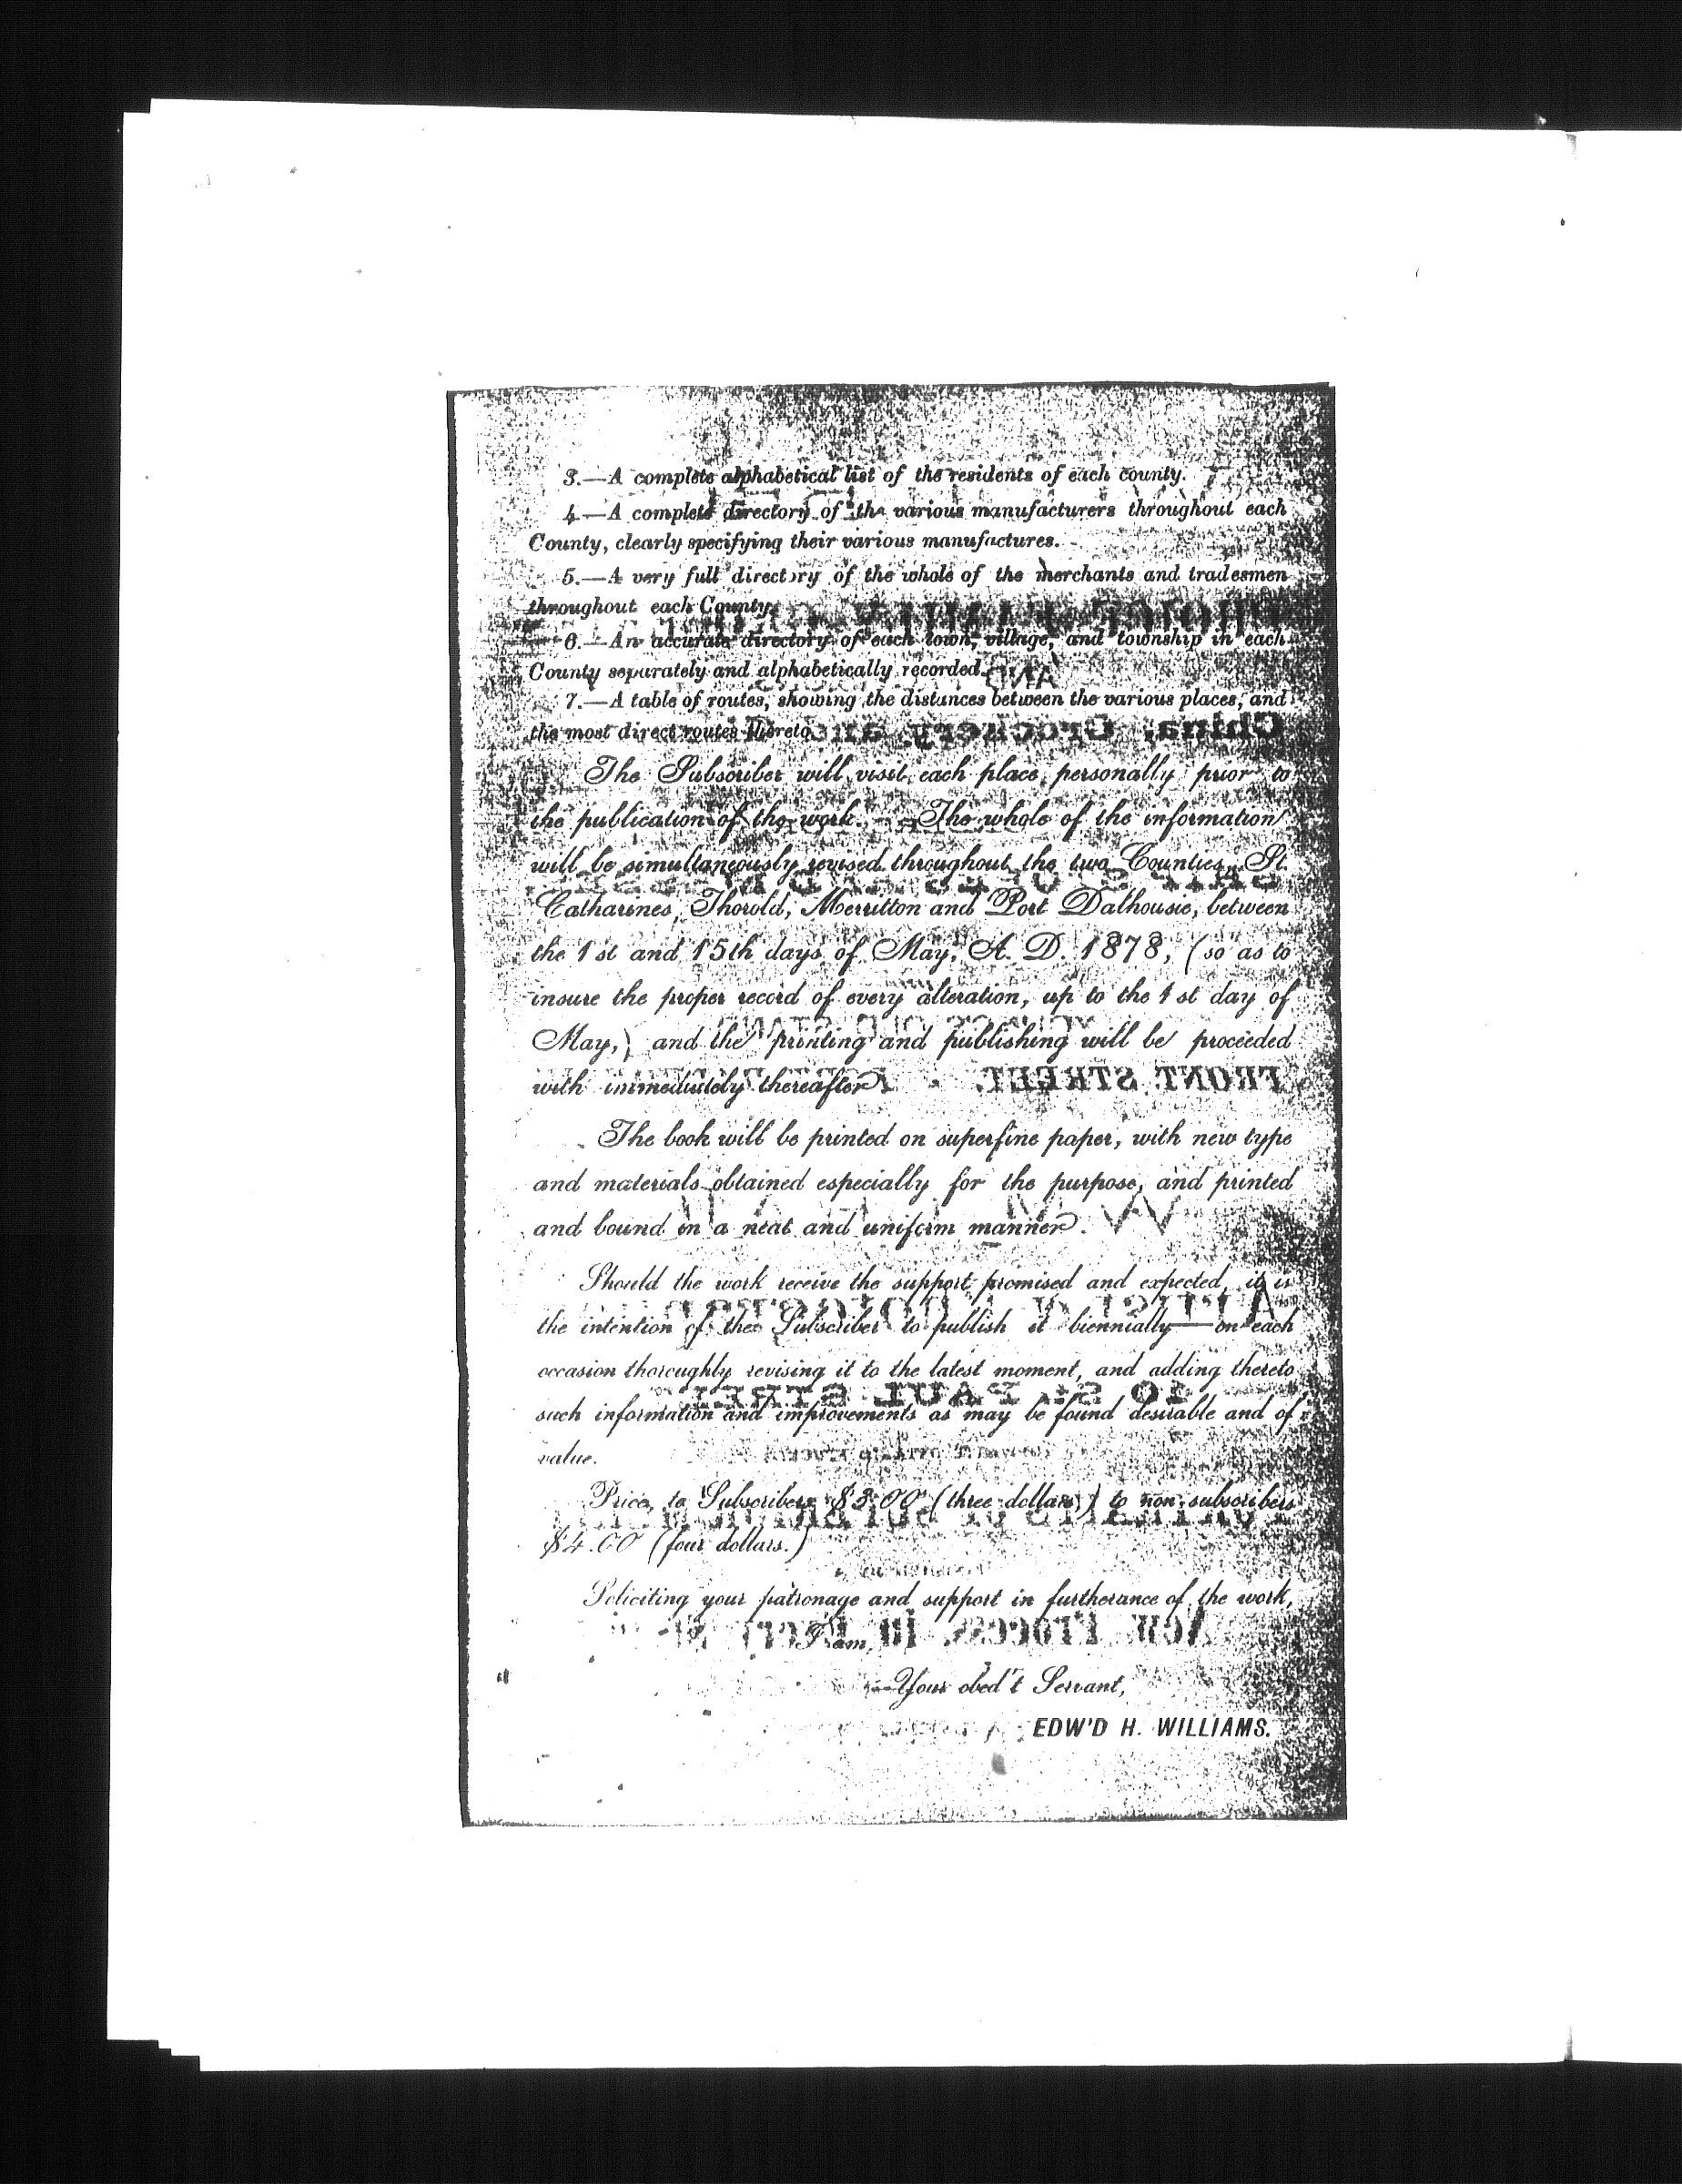 3.—A complete alphabetical list of the residents of each county.
4—A complete directory of the various manufacturers throughout each
County, clearly specifying their various manufactures.
5.—A very full directory of the whole of the merchants and tradesmen
throughout each County.
6.—An accurate directory of each town, village, and township in each
County separately and alphabetically recorded.
7.—A table of routes, showing the distances between the various places, and
the most direct routes thereto.
The Subscriber will visit each place personally prior to
the publication of the work. The whole of the information
will be simultaneously revised throughout the two Counties, St.
Catharines, Thorold, Merritton and Port Dalhousie, between
the 1st and 15th days of May, A. D. 1878, (so as to
insure the proper record of every alteration, up to the 1st day of
May,) and the printing and publishing will be proceeded
with immediately thereafter.
The book will be printed on superfine paper, with new type
and materials obtained especially for the purpose, and printed
and bound in a neat and uniform manner.
Should the work receive the support promised and expected, it is
the intention of the Subscriber to publish it biennially—on each
occasion thoroughly revising it to the latest moment, and adding thereto
such information and improvements as may be found desirable and of
value.
Price, to Subscribers $3.00 (three dollars,) to non-subscribers
$4.00 (four dollars.)
Soliciting your patronage and support in furtherance of the work,
I am,
Your obed't Servant,
EDW'D H. WILLIAMS.